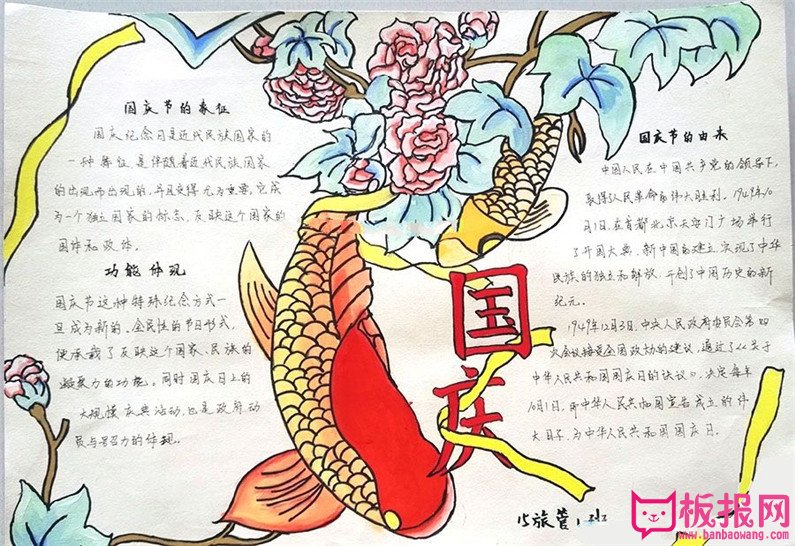 国庆节的象征
国庆纪念日是近代民族国家的
一种特征,是伴随着近代民族国家
的出现而出现的,并且变得尤为重要。它成
为一个独立国家的标志,反映这个国家的
国体和政体。
功能体现
国庆节这种特殊纪念方式一
旦成为新的、全民性的节日形式,
便承载了反映这个国家、民族的
凝聚力的功能。同时国庆日上的
大规模庆典活动,也是政府动
员与号召力的体现。
国庆
国庆节的由来
中国人民在中国共产党的领导下,
取得了人民革命的伟大胜利。1949年10
月1日,在首都北京天安门广场举行
了开国大典,新中国的建立,实现了中华
民族的独立和解放,开创了中国历史的新
纪元。
1949年12月3日,中央人民政府委员会第四
次会议接受全国政协的建议,通过了《关于
中华人民共和国国庆日的决议》,决定每年
10月1日,即中华人民共和国宣告成立的伟
大日子,为中华人民共和国国庆日。
15旅管1班
板报网
www.banbaowang.com